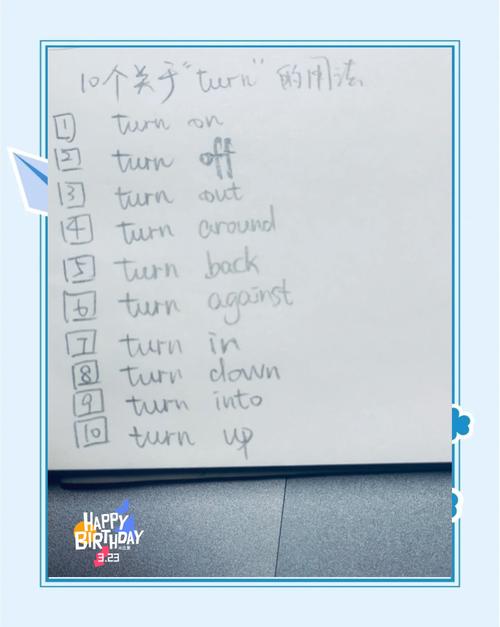 10个关于"turn"的用法
1 turn on
2 turn off
3 turn out
4 turn around
5 turn back
6 turn against
7 turn in
8 turn down
9 turn into
10 turn up
HAPPY
BIRTHDAY
3.23